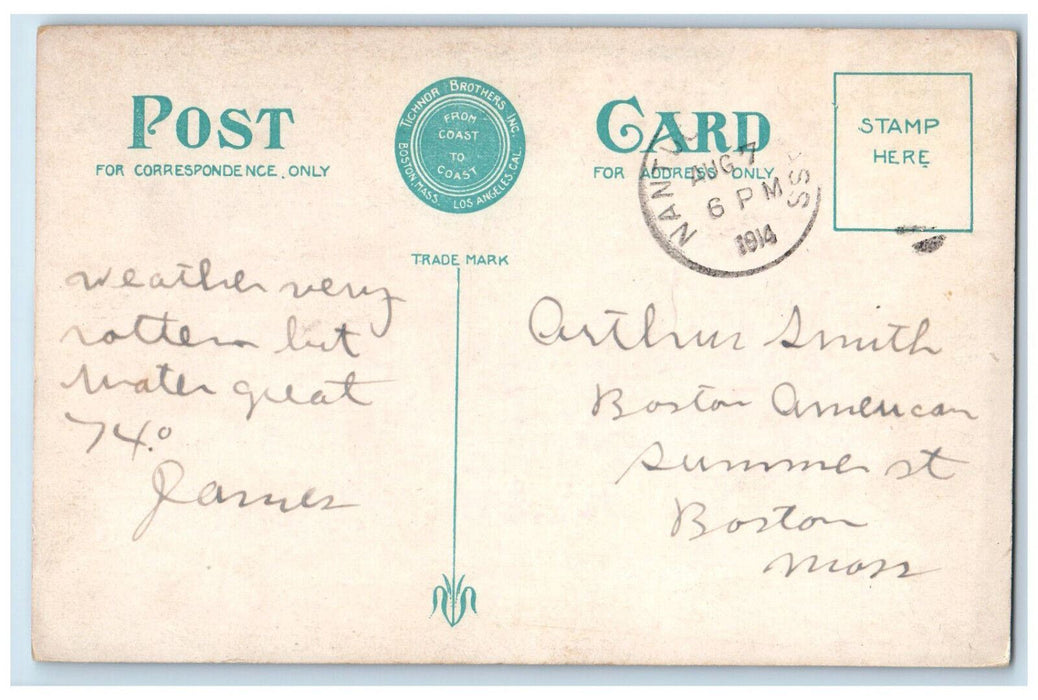 POST
FOR CORRESPONDENCE ONLY
TICHNOR BROTHERS INC.
BOSTON, MASS. LOS ANGELES, CAL.
FROM
COAST
TO
COAST
TRADE MARK
CARD
FOR ADDRESS ONLY
STAMP
HERE
NANTU
AUG 7
6 PM
1914
SS
weather very
rotten but
water great
74.°
James
Arthur Smith
Boston American
Summer st
Boston
Mass